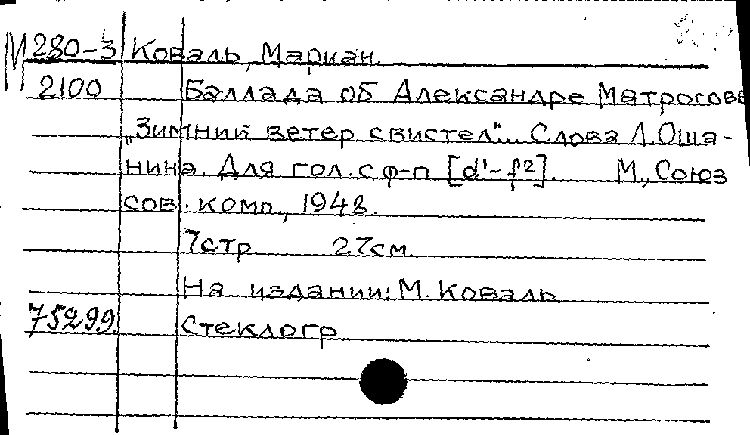 М 280-3 Коваль, Мариан.
2100 Баллада об Александре Матросове
„Зимний ветер свистел"... Слова Л. Оша-
нина. Для гол. с ф-п [d'-f²]. М., Союз
сов. комп., 1948.
7стр 27см.
На издании: М. Коваль
75299 Стеклогр